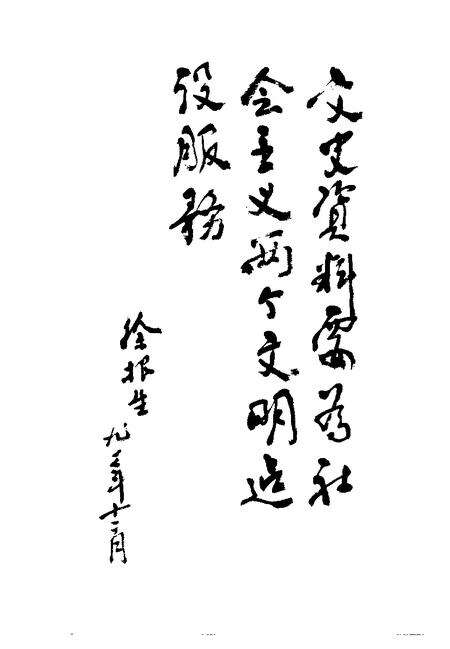 文史資料要為社
会主义两个文明建
设服務
徐根生
九年十二月